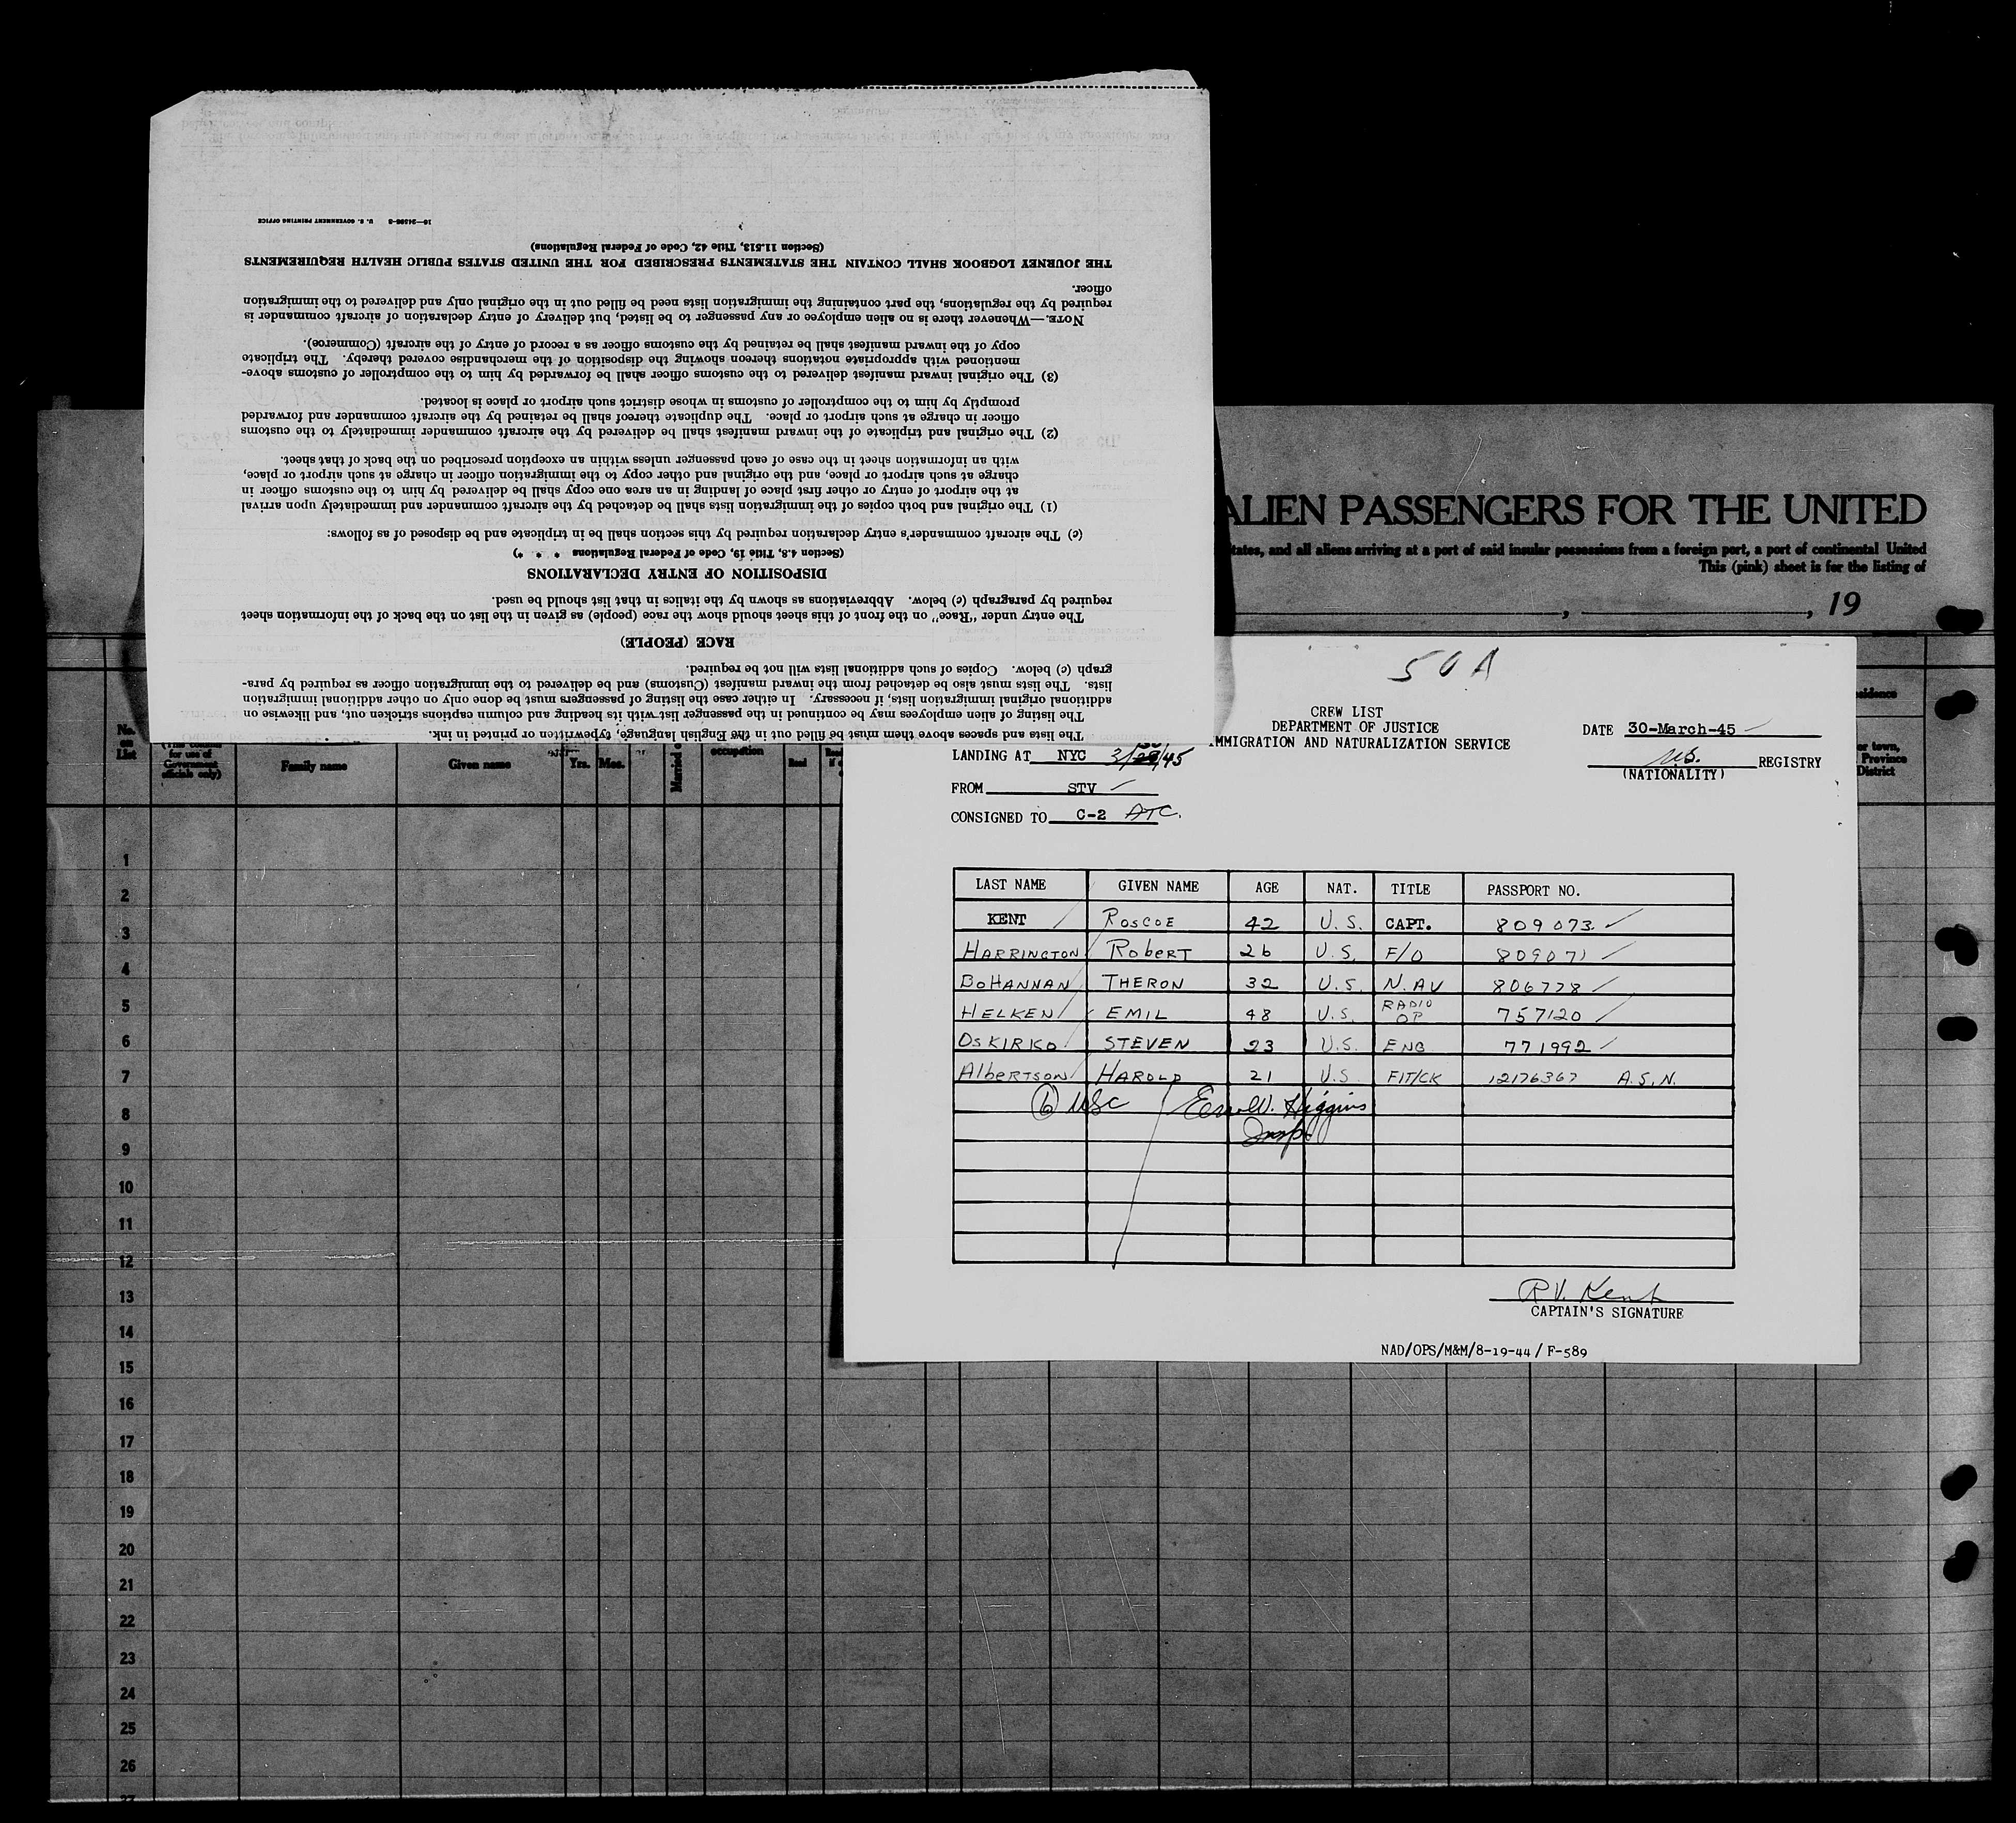 The lists and spaces above them must be filled out in the English language, typewritten or printed in ink.
The listing of alien employees may be continued in the passenger list with its heading and column captions stricken out, and likewise on
additional original immigration lists, if necessary. In either case the listing of passengers must be done only on other additional immigration
lists. The lists must also be detached from the inward manifest (Customs) and be delivered to the immigration officer as required by para-
graph (c) below. Copies of such additional lists will not be required.
RACE (PEOPLE)
The entry under "Race" on the front of this sheet should show the race (people) as given in the list on the back of the information sheet
required by paragraph (c) below. Abbreviations as shown by the italics in that list should be used.
DISPOSITION OF ENTRY DECLARATIONS
(Section 4.8, Title 19, Code of Federal Regulations * * *)
(c) The aircraft commander's entry declaration required by this section shall be in triplicate and be disposed of as follows:
(1) The original and both copies of the immigration lists shall be detached by the aircraft commander and immediately upon arrival
at the airport of entry or other first place of landing in an area one copy shall be delivered by him to the customs officer in
charge at such airport or place, and the original and other copy to the immigration officer in charge at such airport or place,
with an information sheet in the case of each passenger unless within an exception prescribed on the back of that sheet.
(2) The original and triplicate of the inward manifest shall be delivered by the aircraft commander immediately to the customs
officer in charge at such airport or place. The duplicate thereof shall be retained by the aircraft commander and forwarded
promptly by him to the comptroller of customs in whose district such airport or place is located.
(3) The original inward manifest delivered to the customs officer shall be forwarded by him to the comptroller of customs above-
mentioned with appropriate notations thereon showing the disposition of the merchandise covered thereby. The triplicate
copy of the inward manifest shall be retained by the customs officer as a record of entry of the aircraft (Commerce).
NOTE.—Whenever there is no alien employee or any passenger to be listed, but delivery of entry declaration of aircraft commander is
required by the regulations, the part containing the immigration lists need be filled out in the original only and delivered to the immigration
officer.
THE JOURNEY LOGBOOK SHALL CONTAIN THE STATEMENTS PRESCRIBED FOR THE UNITED STATES PUBLIC HEALTH REQUIREMENTS
(Section 11.513, Title 42, Code of Federal Regulations)
16—24598-2 U. S. GOVERNMENT PRINTING OFFICE
ALIEN PASSENGERS FOR THE UNITED
tates, and all aliens arriving at a port of said insular possessions from a foreign port, a port of continental United
This (pink) sheet is for the listing of
, , 19
No. on List
for use of Government officials only)
Family name
Given name
Yrs. Mos.
Married o
occupation
Read
residence
or town,
Province
District
50A
CREW LIST
DEPARTMENT OF JUSTICE
IMMIGRATION AND NATURALIZATION SERVICE
DATE 30-March-45
U.S. REGISTRY
(NATIONALITY)
LANDING AT NYC 3/30/45
FROM STV
CONSIGNED TO C-2 ATC.
LAST NAME GIVEN NAME AGE NAT. TITLE PASSPORT NO.
KENT ROSCOE 42 U.S. CAPT. 809073
HARRINGTON RobERT 26 U.S. F/O 809071
BOHANNAN THERON 32 U.S. N.AV 806778
HELKEN EMIL 48 U.S. RADIO OP 757120
OSKIRKO STEVEN 23 U.S. ENG 771992
AlbERTSON HAROLD 21 U.S. FlT/CK 12176367 A.S.N.
6 USC W. Higgins
Insp
R V. Kent
CAPTAIN'S SIGNATURE
NAD/OPS/M&M/8-19-44/ F-589
1
2
3
4
5
6
7
8
9
10
11
12
13
14
15
16
17
18
19
20
21
22
23
24
25
26
27